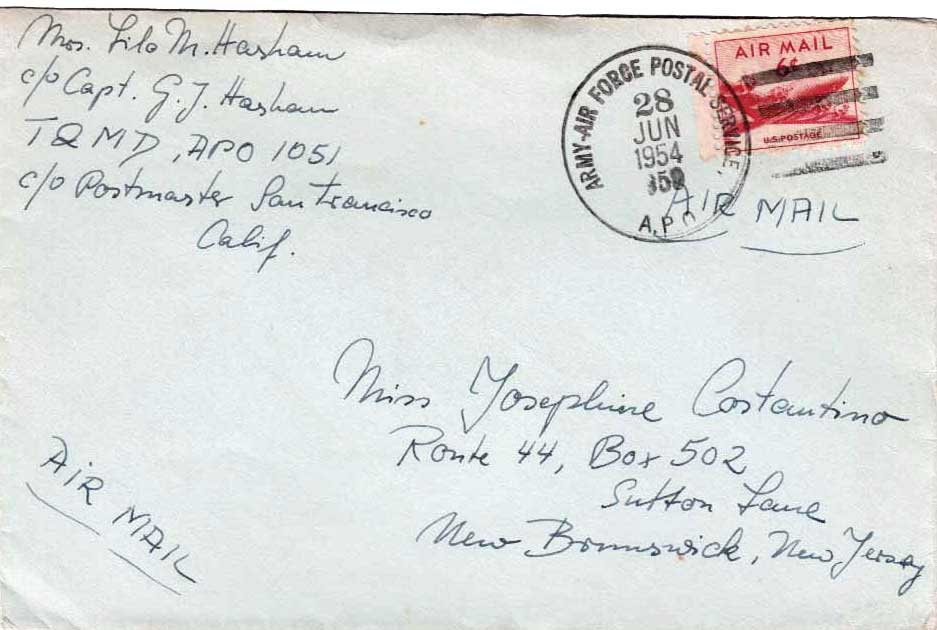 Mrs. Lilo M. Hasham
c/o Capt. G. J. Hasham
T & MD, APO 1051
c/o Postmaster San Francisco
Calif.
ARMY-AIR FORCE POSTAL SERVICE,
28
JUN
1954
A.P.O
AIR MAIL
6¢
U.S. POSTAGE
AIR MAIL
Miss Josephine Costantino
Route 44, Box 502
Sutton Lane
New Brunswick, New Jersey
AIR MAIL